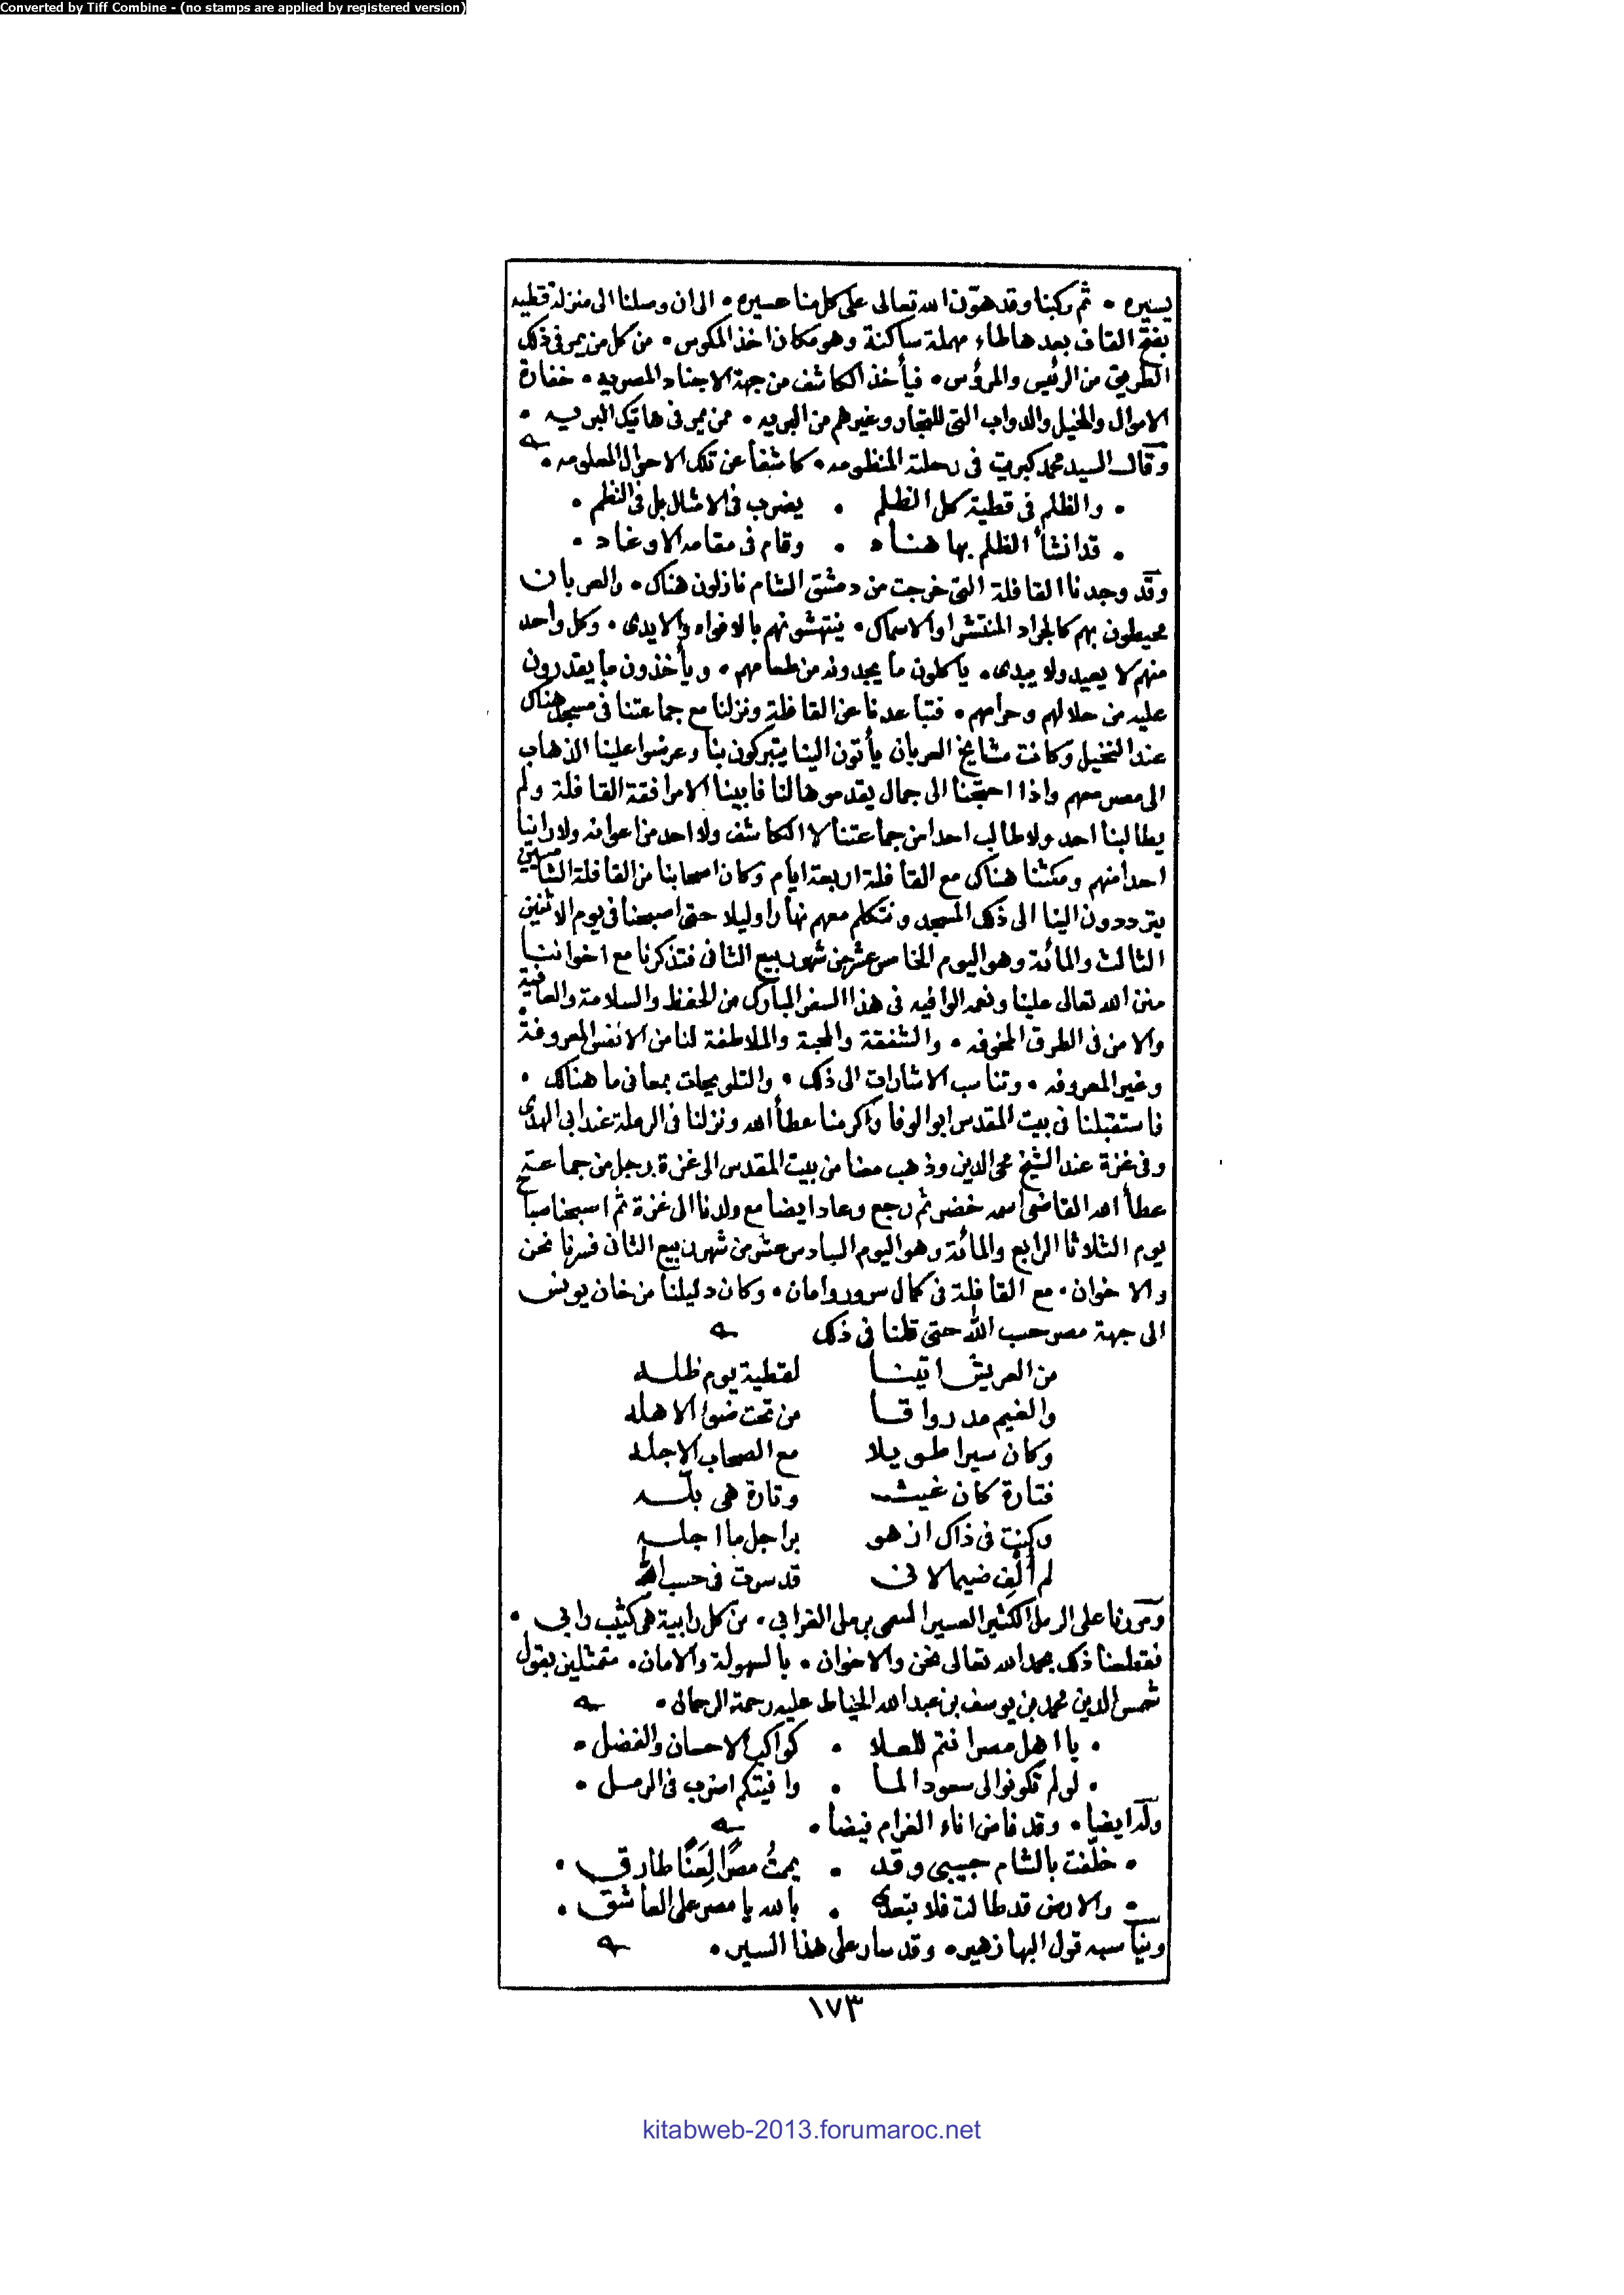 Converted by Tiff Combine - (no stamps are applied by registered version)
يسيره • ثم ركبنا وقد هوّن الله تعالى على كل منا مسيره • الى ان وصلنا الى منزلة قطيه
بفتح القاف بعدها طاء مهملة ساكنة وهو مكان اخذ المكوس • من كل من يمر فى ذلك
الطريق من الرئيس والمرؤس • فيأخذ الكاشف من جهة الاجناد المصريه • خفارة
الاموال والخيل والدواب التى للتجار وغيرهم من البريه • ممن يمر فى هاتيك البريه •
وقال السيد محمد كبريت فى رحلته المنظومه • كاشفا عن تلك الاحوال المعلومه •
• والظلم فى قطية كل الظلم • يضرب فى الامثال بل فى النظم •
• قد انشأ الظلم بها هناد • وقام فى مقامه الاوغاد •
وقد وجدنا القافلة التى خرجت من دمشق الشام نازلون هناك • والعربان
محيطون بهم كالجراد المنتشر او الاسماك • ينتهشونهم بالافواه والايدى • وكل واحد
منهم لا يعيد ولا يبدى • ياكلون ما يجدونه من طعامهم • ويأخذون ما يقدرون
عليه من حلالهم وحرامهم • فتباعدنا عن القافلة ونزلنا مع جماعتنا فى مسجد هناك
عند النخيل وكانت مشايخ العربان يأتون الينا يتبركون بنا وعرضوا علينا الذهاب
الى مصر معهم واذا احتجنا الى جمال يقدموها لنا فابينا الا مرافقة القافلة ولم
يطالبنا احد ولا طالب احدا من جماعتنا لا الكاشف ولا احد من اعوانه ولا راينا
احدا منهم ومكثنا هناك مع القافلة اربعة ايام وكان اصحابنا من القافلة الشاميين
يترددون الينا الى ذلك المسجد ونتكلم معهم نهارا وليلا حتى اصبحنا فى يوم الاثنين
الثالث والمائة وهو اليوم الخامس عشر من شهر ربيع الثانى فتذكرنا مع اخواننا
منن الله تعالى علينا ونعمه الوافيه فى هذا السفر المبارك من الحفظ والسلامة والعافية
والامن فى الطرق المخوفه • والشفقة والمحبة والملاطفة لنا من الانفس المعروفة
وغير المعروفه • وتناسب الاشارات الى ذلك • والتلويحات بمعانى ما هنالك •
فاستقبلنا فى بيت المقدس ابو الوفا واكرمنا عطأ الله ونزلنا فى الرملة عند ابى الهدى
وفى غزة عند الشيخ محى الدين وذهب معنا من بيت المقدس الى غزة رجل من جماعة
عطأ الله القاضى اسمه خضر ثم رجع وعاد ايضا مع ولدنا الى غزة ثم اصبحنا صباح
يوم الثلاثا الرابع والمائة وهو اليوم السادس عشر من شهر ربيع الثانى فسرنا نحن
والاخوان • مع القافلة فى كمال سرور وامان • وكان دليلنا من خان يونس
الى جهة مصر حسب الله حتى قلنا فى ذلك
من العريش اتينا لقطية يوم ظله
والغيم مد رواقا من تحت ضوء الاهله
وكان سيرا طويلا مع الصحاب الاجله
فتارة كان غيث وتارة هى بله
وكنت فى ذاك ازهو براجل ما اجله
لم ألف ضيما لانى قد سرت فى حسب الله
ومررنا على الرمل الكثير العسير المسمى برمل الغرابي • من كل رابية هى كثيب رابي •
فقطعنا ذلك بحمد الله تعالى نحن والاخوان • بالسهولة والامان • متمثلين بقول
شمس الدين محمد بن يوسف بن عبد الله الخياط عليه رحمة الرحمان •
• يا اهل مصر انتم للعلا • كواكب الاحسان والفضل •
• لو لم تكونوا لى سعودا لما • وافيتكم اضرب فى الرمل •
وله ايضا • وقد فاض اناء الغرام فيضا •
• خلّفت بالشام حبيبى وقد • يممتُ مصرًا لِعَنًا طارق •
• والارض قد طالت فلا تبعدى • بالله يا مصر على العاشق •
ويناسبه قول البها زهير • وقد سار على هذا السير •
١٧٣
kitabweb-2013.forumaroc.net